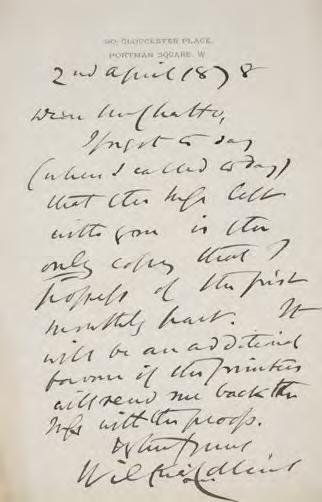 90, GLOUCESTER PLACE,
PORTMAN SQUARE. W
2nd April 1878
Dear Mr Chatto,
I forgot to say
(when I called today)
that the Mss left
with you is the
only copy that I
possess of the first
monthly part. It
will be an additional
favour if the printers
will send me back the
Mss with the proofs.
Wilkie Collins